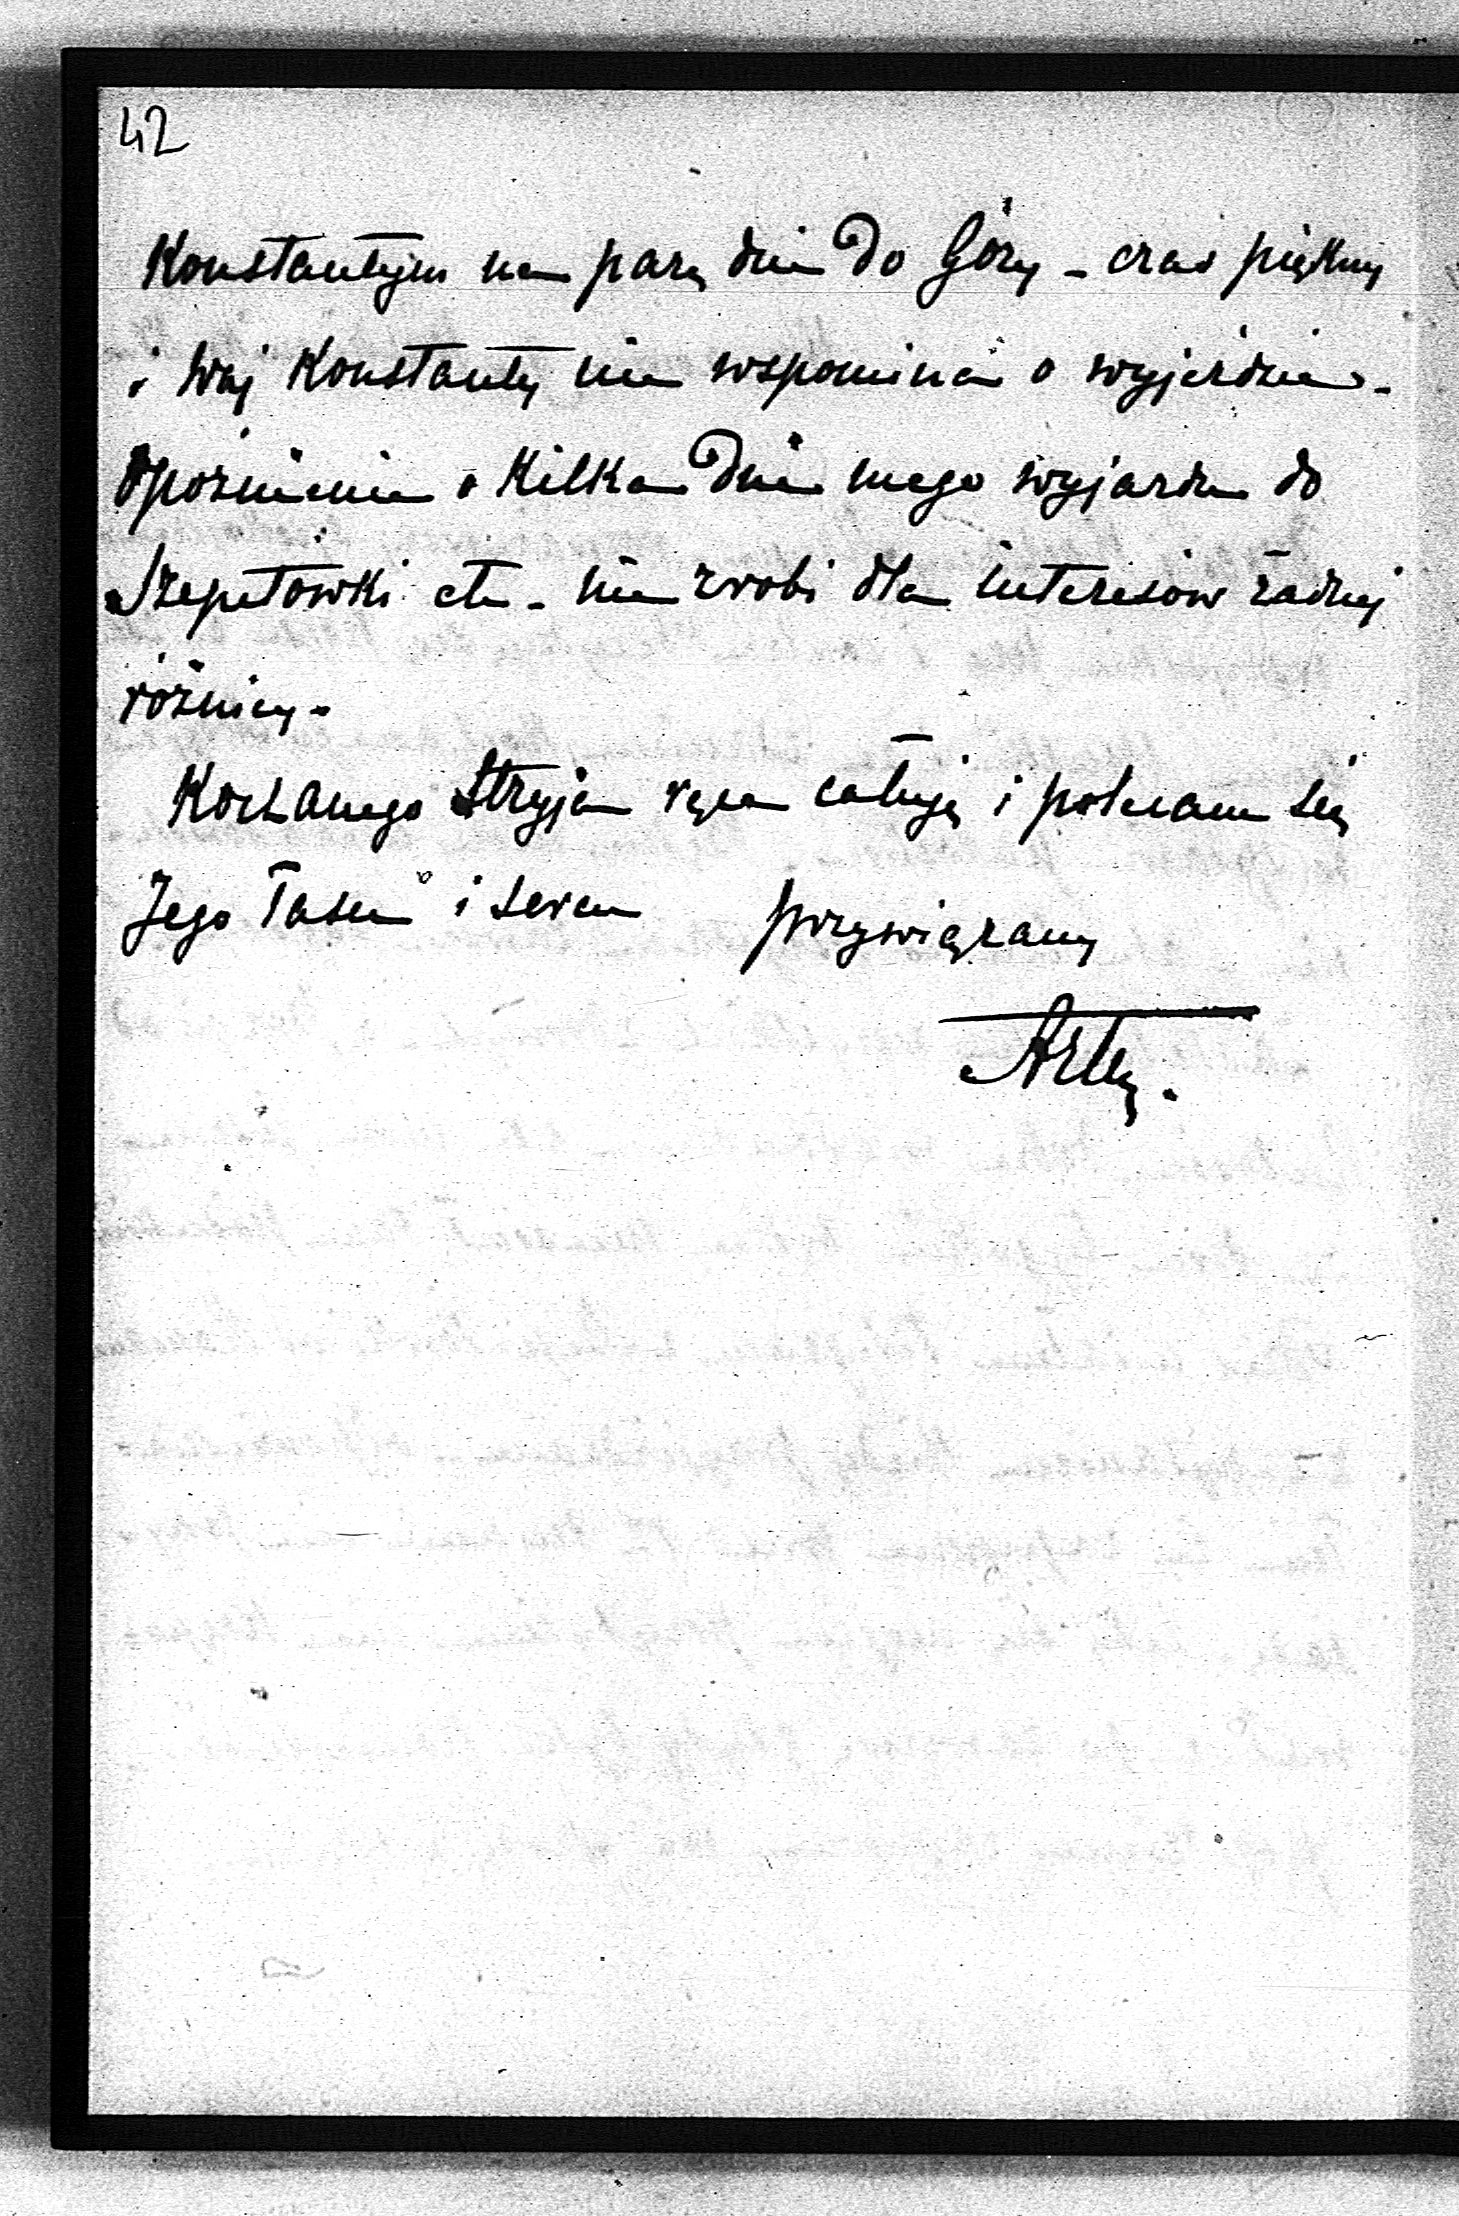 42
Konstantym na parę dni do Góry – czas piękny
i Wuj Konstanty nie wspomina o wyjeździe –
Opoźnienie o kilka dni mego wyjazdu do
Szepetówki etc – nie zrobi dla interesów żadnej
różnicy –
Kochanego Stryja ręce całuję i polecam się
Jego łasce i sercu przywiązany